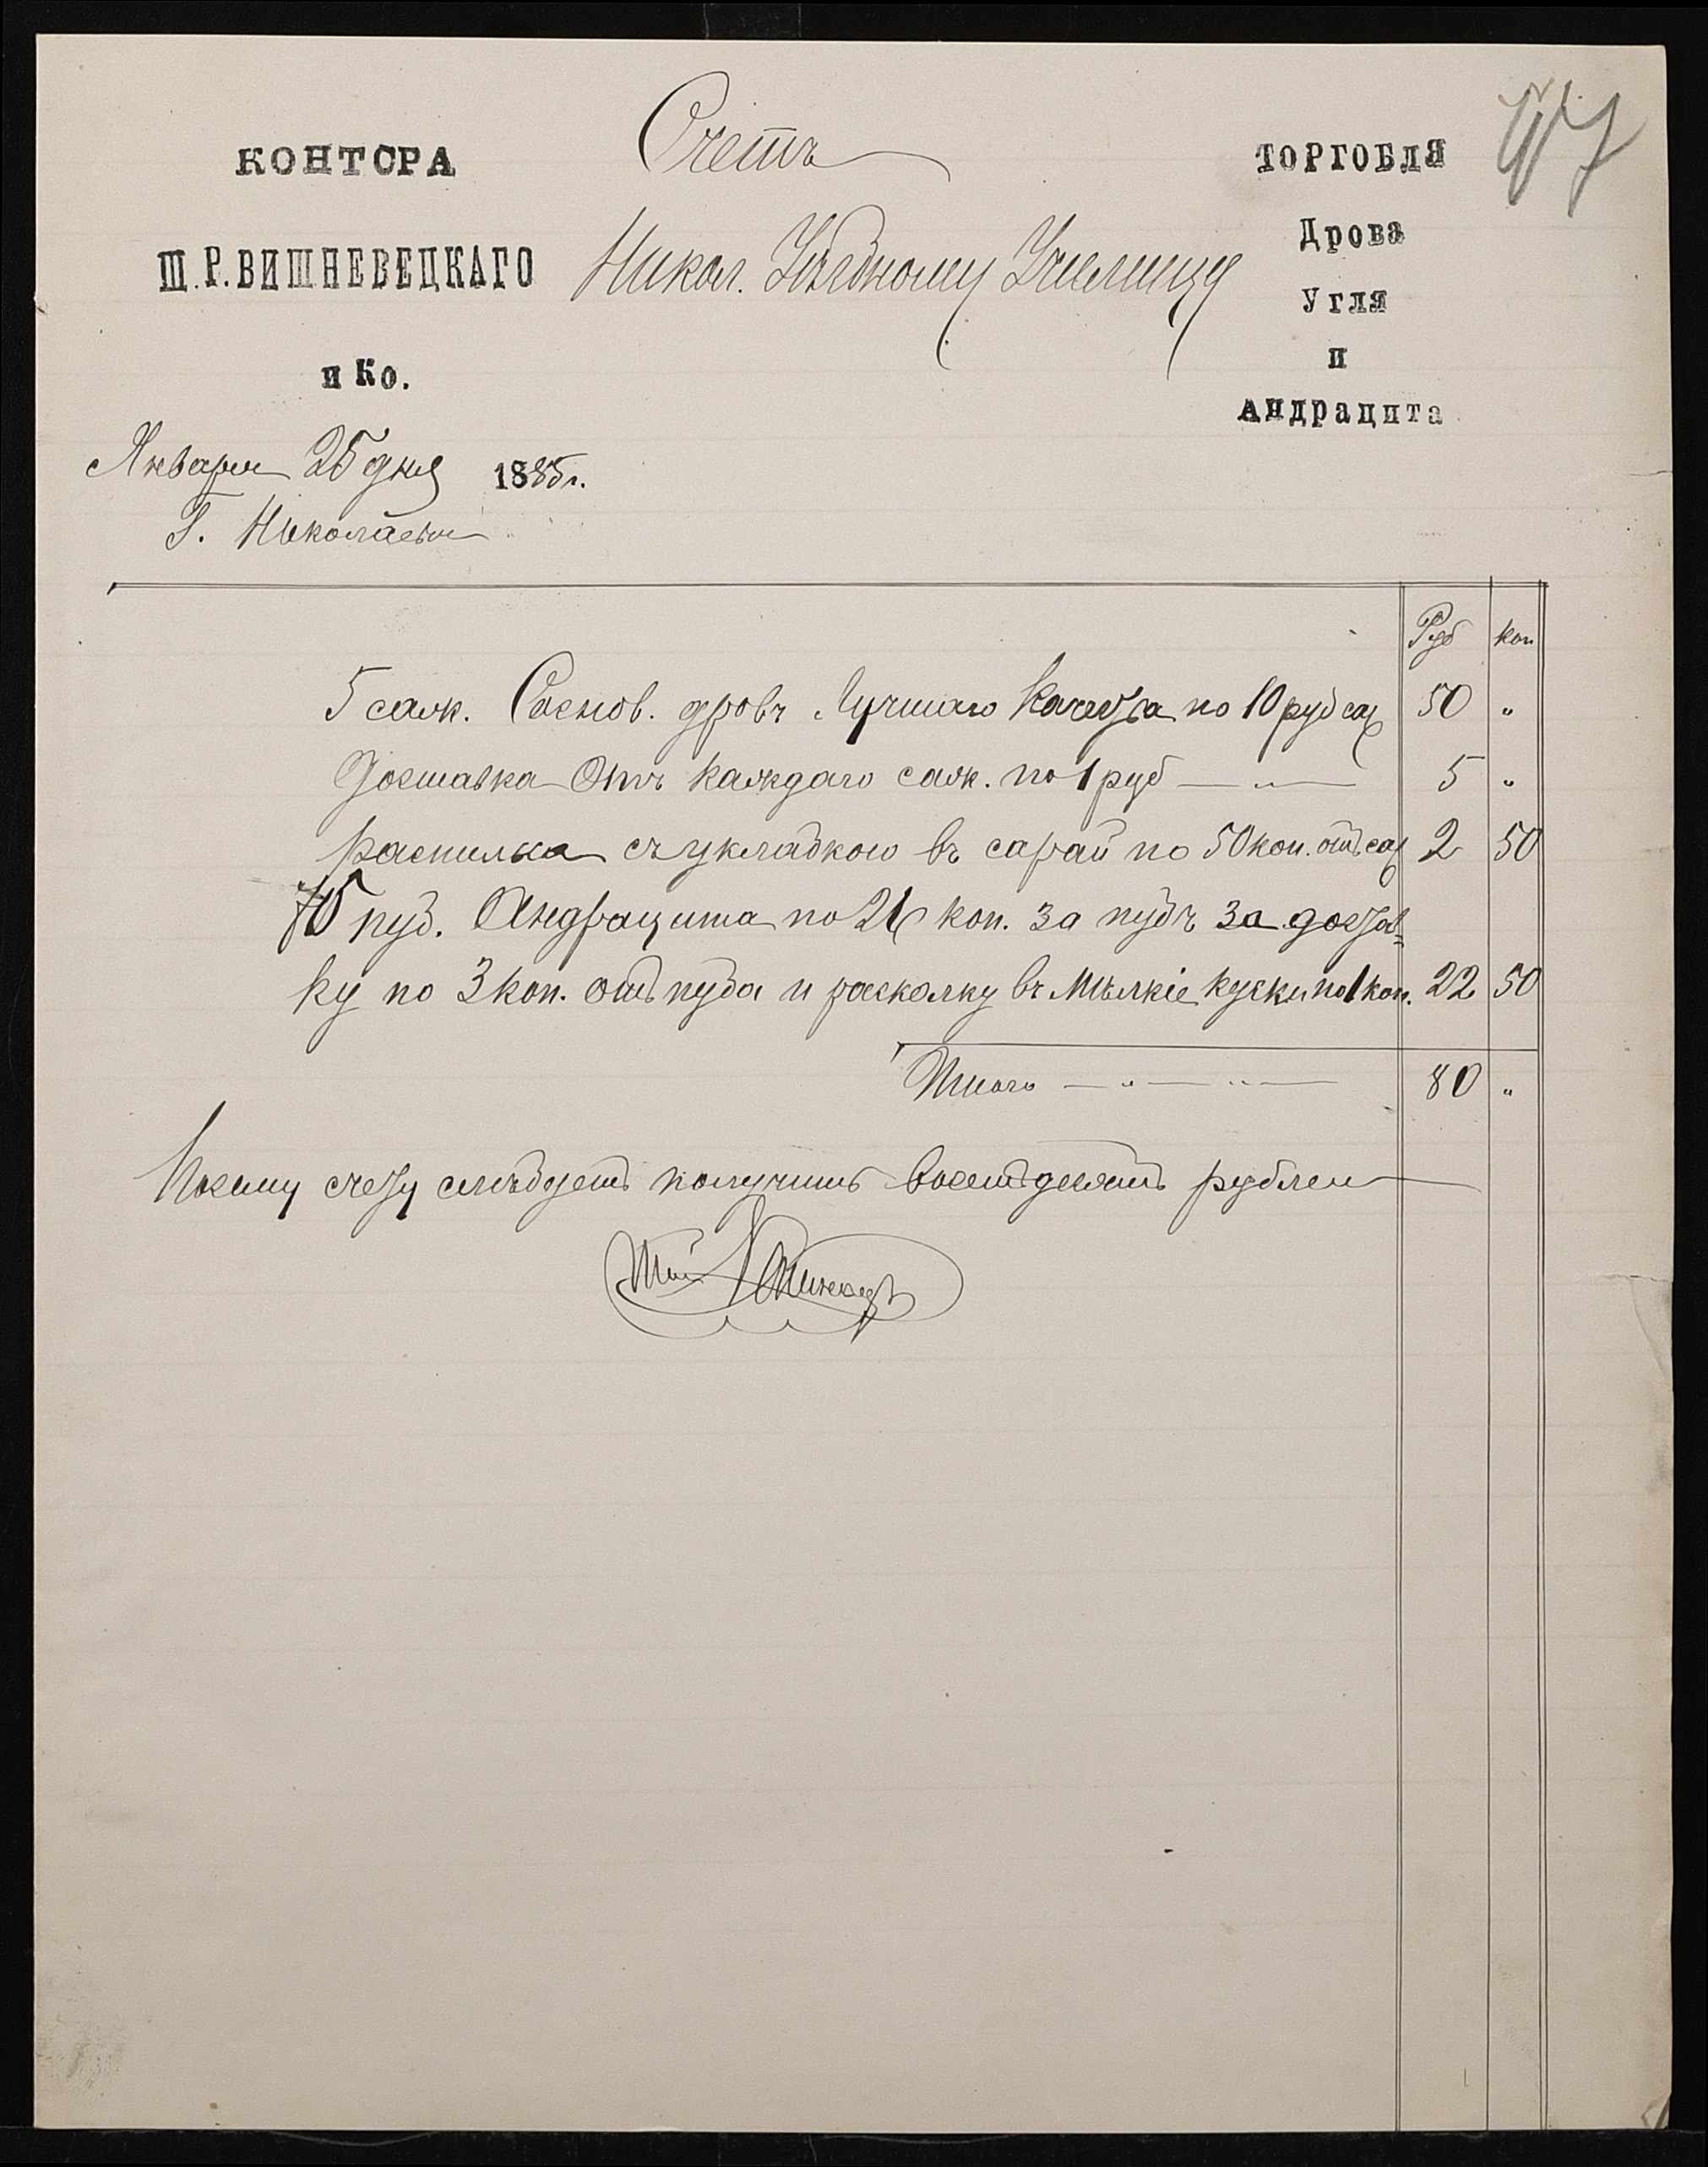 КОНТОРА
Ш.Р.ВИШНЕВЕЦКАГО
и Ко.
Счетъ
Никол. Уѣздному Училищу
ТОРГОВЛЯ
Дрова
Угля
и
Андрацита
Января 25 дня 1885 г.
Г. Николаевъ
Руб коп
5 саж. Соснов. дровъ Лучшаго Качества по 10 руб саж 50 "
Доставка Отъ каждаго саж. по 1 руб — " — 5 "
распилка съ укладкою въ сарай по 50 коп. отъ саж 2 50
75 пуд. Андрацита по 26 коп. за пудъ за достав=
ку по 3 коп. отъ пуда и расколку въ Мѣлкіе куски по 1 коп. 22 50
Итого — " — " — 80 "
Посему счету слѣдуетъ получить восемьдесятъ рублей